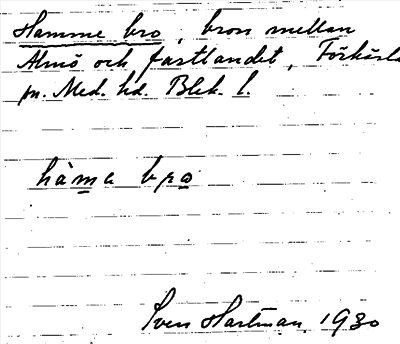 Hamme bro, bron mellan
Almö och fastlandet, Förkärla
sn. Med. hd. Blek. l.
hàma bro
Sven Hartman 1930